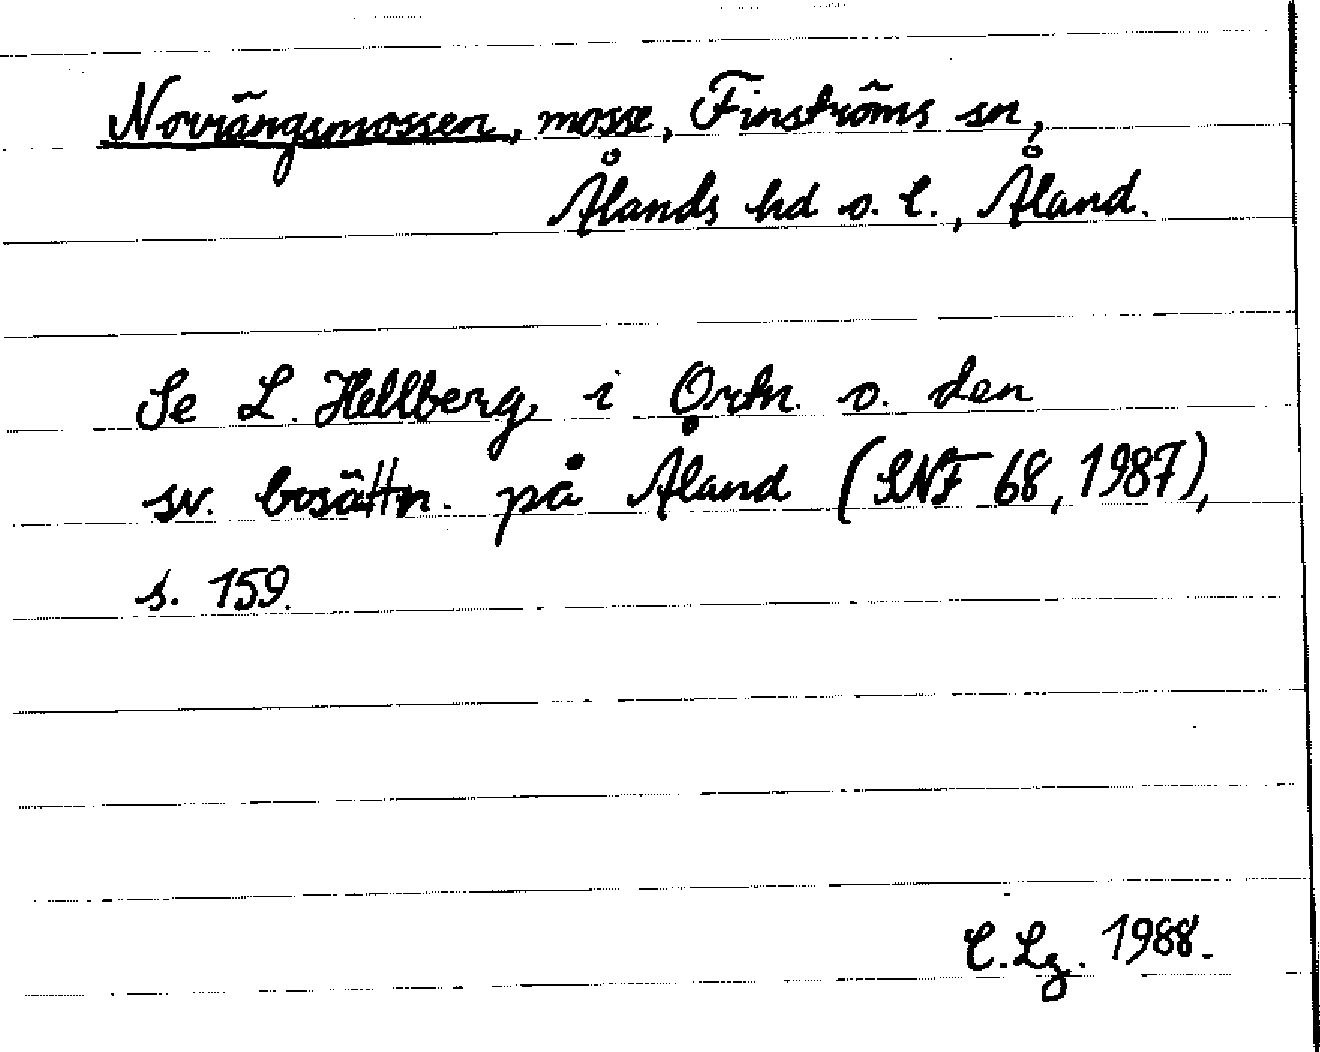 Novrängsmossen, mosse, Finströms sn,
Ålands hd o. l., Åland.
Se L. Hellberg, i Ortn. o. den
sv. bosättn. på Åland (SNF 68, 1987),
s. 159.
C. Lg. 1988.